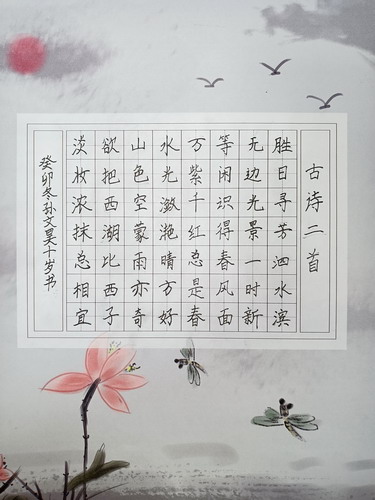 古诗二首
胜日寻芳泗水滨
无边光景一时新
等闲识得春风面
万紫千红总是春
水光潋滟晴方好
山色空蒙雨亦奇
欲把西湖比西子
淡妆浓抹总相宜
癸卯冬孙文昊十岁书